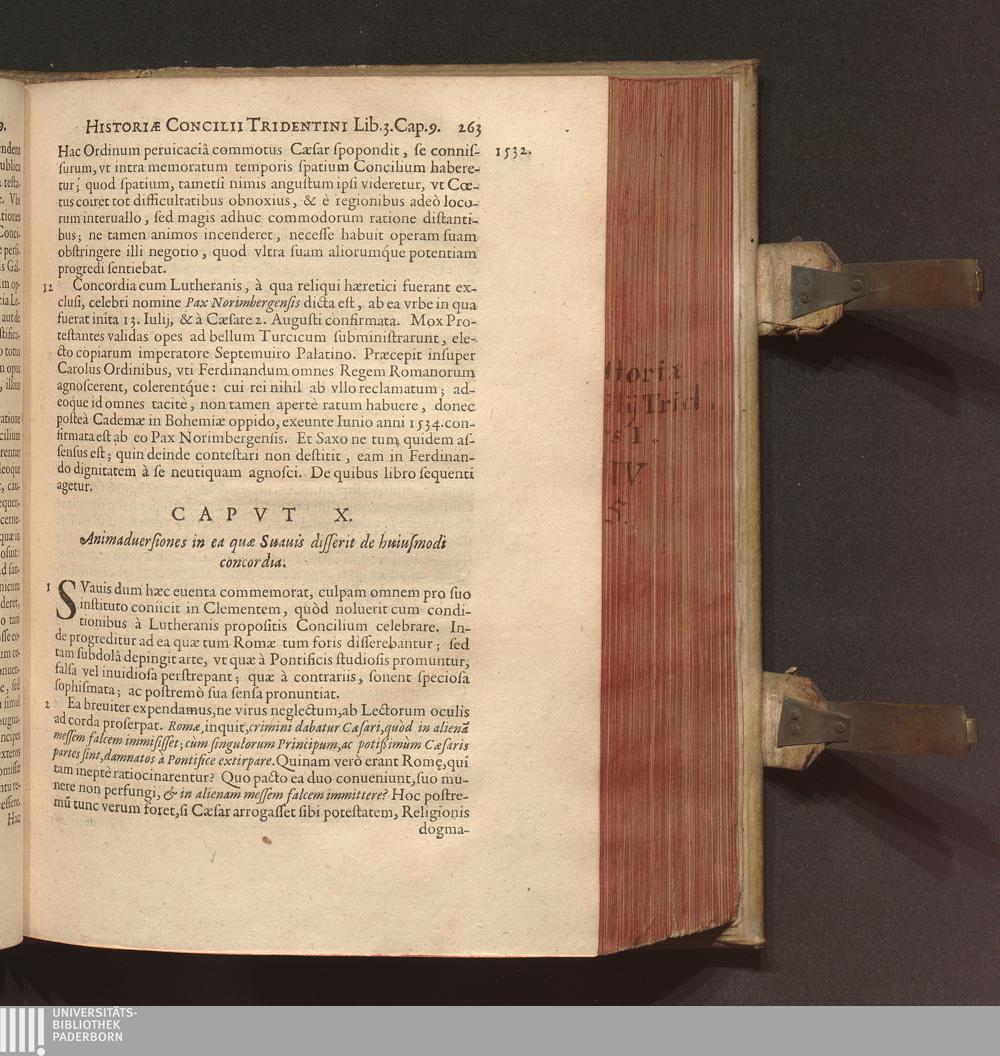 HISTORIÆ CONCILII TRIDENTINI Lib.3.Cap.9. 263
Hac Ordinum peruicaciâ commotus Cæsar spopondit, se connis- 1532.
surum, vt intra memoratum temporis spatium Concilium habere-
tur; quod spatium, tametsi nimis angustum ipsi videretur, vt Cœ-
tus coiret tot difficultatibus obnoxius, & è regionibus adeò loco-
rum interuallo, sed magis adhuc commodorum ratione distanti-
bus; ne tamen animos incenderet, necesse habuit operam suam
obstringere illi negotio, quod vltra suam aliorumque potentiam
progredi sentiebat.
12 Concordia cum Lutheranis, à qua reliqui hæretici fuerant ex-
clusi, celebri nomine Pax Norimbergensis dicta est, ab ea vrbe in qua
fuerat inita 13. Iulij, & à Cæsare 2. Augusti confirmata. Mox Pro-
testantes validas opes ad bellum Turcicum subministrarunt, ele-
cto copiarum imperatore Septemuiro Palatino. Præcepit insuper
Carolus Ordinibus, vti Ferdinandum omnes Regem Romanorum
agnoscerent, colerentque: cui rei nihil ab vllo reclamatum; ad-
eoque id omnes tacitè, non tamen apertè ratum habuere, donec
posteà Cademæ in Bohemiæ oppido, exeunte Iunio anni 1534. con-
firmata est ab eo Pax Norimbergensis. Et Saxo ne tum quidem as-
sensus est; quin deinde contestari non destitit, eam in Ferdinan-
do dignitatem à se neutiquam agnosci. De quibus libro sequenti
agetur.
CAPVT X.
Animaduersiones in ea quæ Suauis disserit de huiusmodi
concordia.
1 SVauis dum hæc euenta commemorat, culpam omnem pro suo
instituto coniicit in Clementem, quòd noluerit cum condi-
tionibus à Lutheranis propositis Concilium celebrare. In-
de progreditur ad ea quæ tum Romæ tum foris disserebantur; sed
tam subdolâ depingit arte, vt quæ à Pontificis studiosis promuntur,
falsa vel inuidiosa perstrepant; quæ à contrariis, sonent speciosa
sophismata; ac postremò sua sensa pronuntiat.
2 Ea breuiter expendamus, ne virus neglectum, ab Lectorum oculis
ad corda proserpat. Romæ, inquit, crimini dabatur Cæsari, quòd in alienā
messem falcem immisisset; cùm singulorum Principum, ac potißimum Cæsaris
partes sint, damnatos à Pontifice extirpare. Quinam verò erant Romę, qui
tam ineptè ratiocinarentur? Quo pacto ea duo conueniunt, suo mu-
nere non perfungi, & in alienam messem falcem immittere? Hoc postre-
mū tunc verum foret, si Cæsar arrogasset sibi potestatem, Religionis
dogma-
UNIVERSITÄTS-
BIBLIOTHEK
PADERBORN